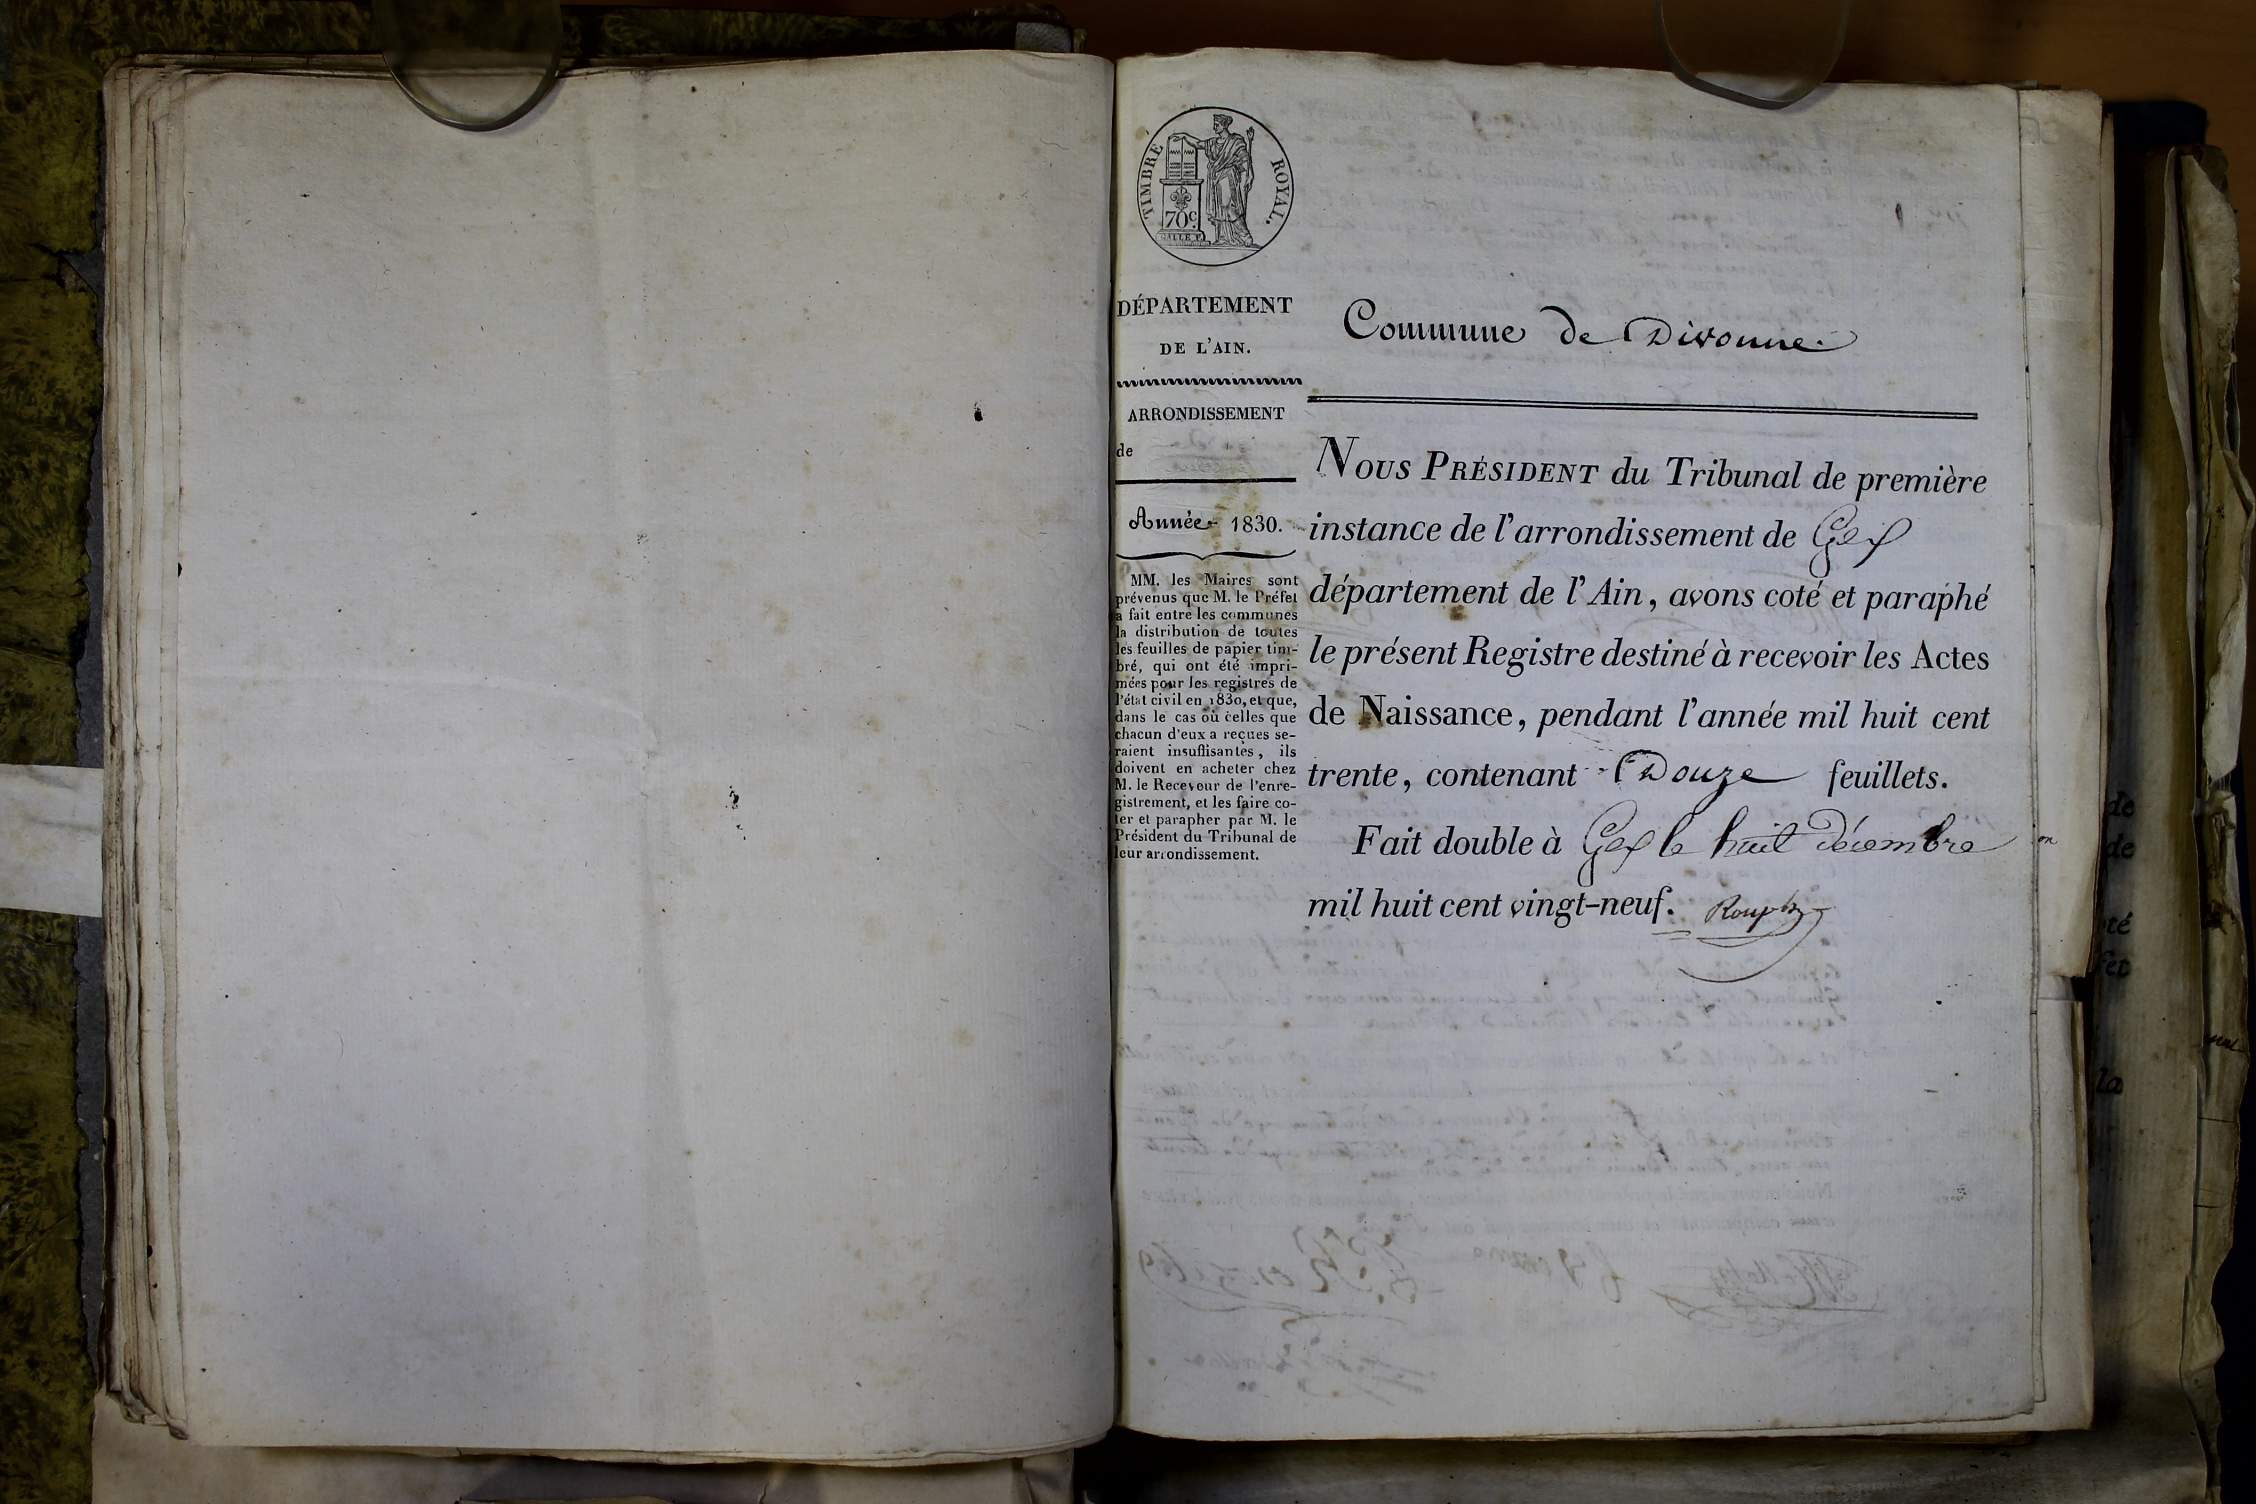 TIMBRE ROYAL.
70c.
DÉPARTEMENT
DE L'AIN.
ARRONDISSEMENT
de
Année 1830.
MM. les Maires sont
prévenus que M. le Préfet
a fait entre les communes
la distribution de toutes
les feuilles de papier tim-
bré, qui ont été impri-
mées pour les registres de
l'état civil en 1830, et que,
dans le cas où celles que
chacun d'eux a reçues se-
raient insuffisantes, ils
doivent en acheter chez
M. le Receveur de l'enre-
gistrement, et les faire co-
ter et parapher par M. le
Président du Tribunal de
leur arrondissement.
Commune de Divonne.
NOUS PRÉSIDENT du Tribunal de première
instance de l'arrondissement de Gex
département de l'Ain, avons coté et paraphé
le présent Registre destiné à recevoir les Actes
de Naissance, pendant l'année mil huit cent
trente, contenant Douze feuillets.
Fait double à Gex le huit décembre
mil huit cent vingt-neuf.